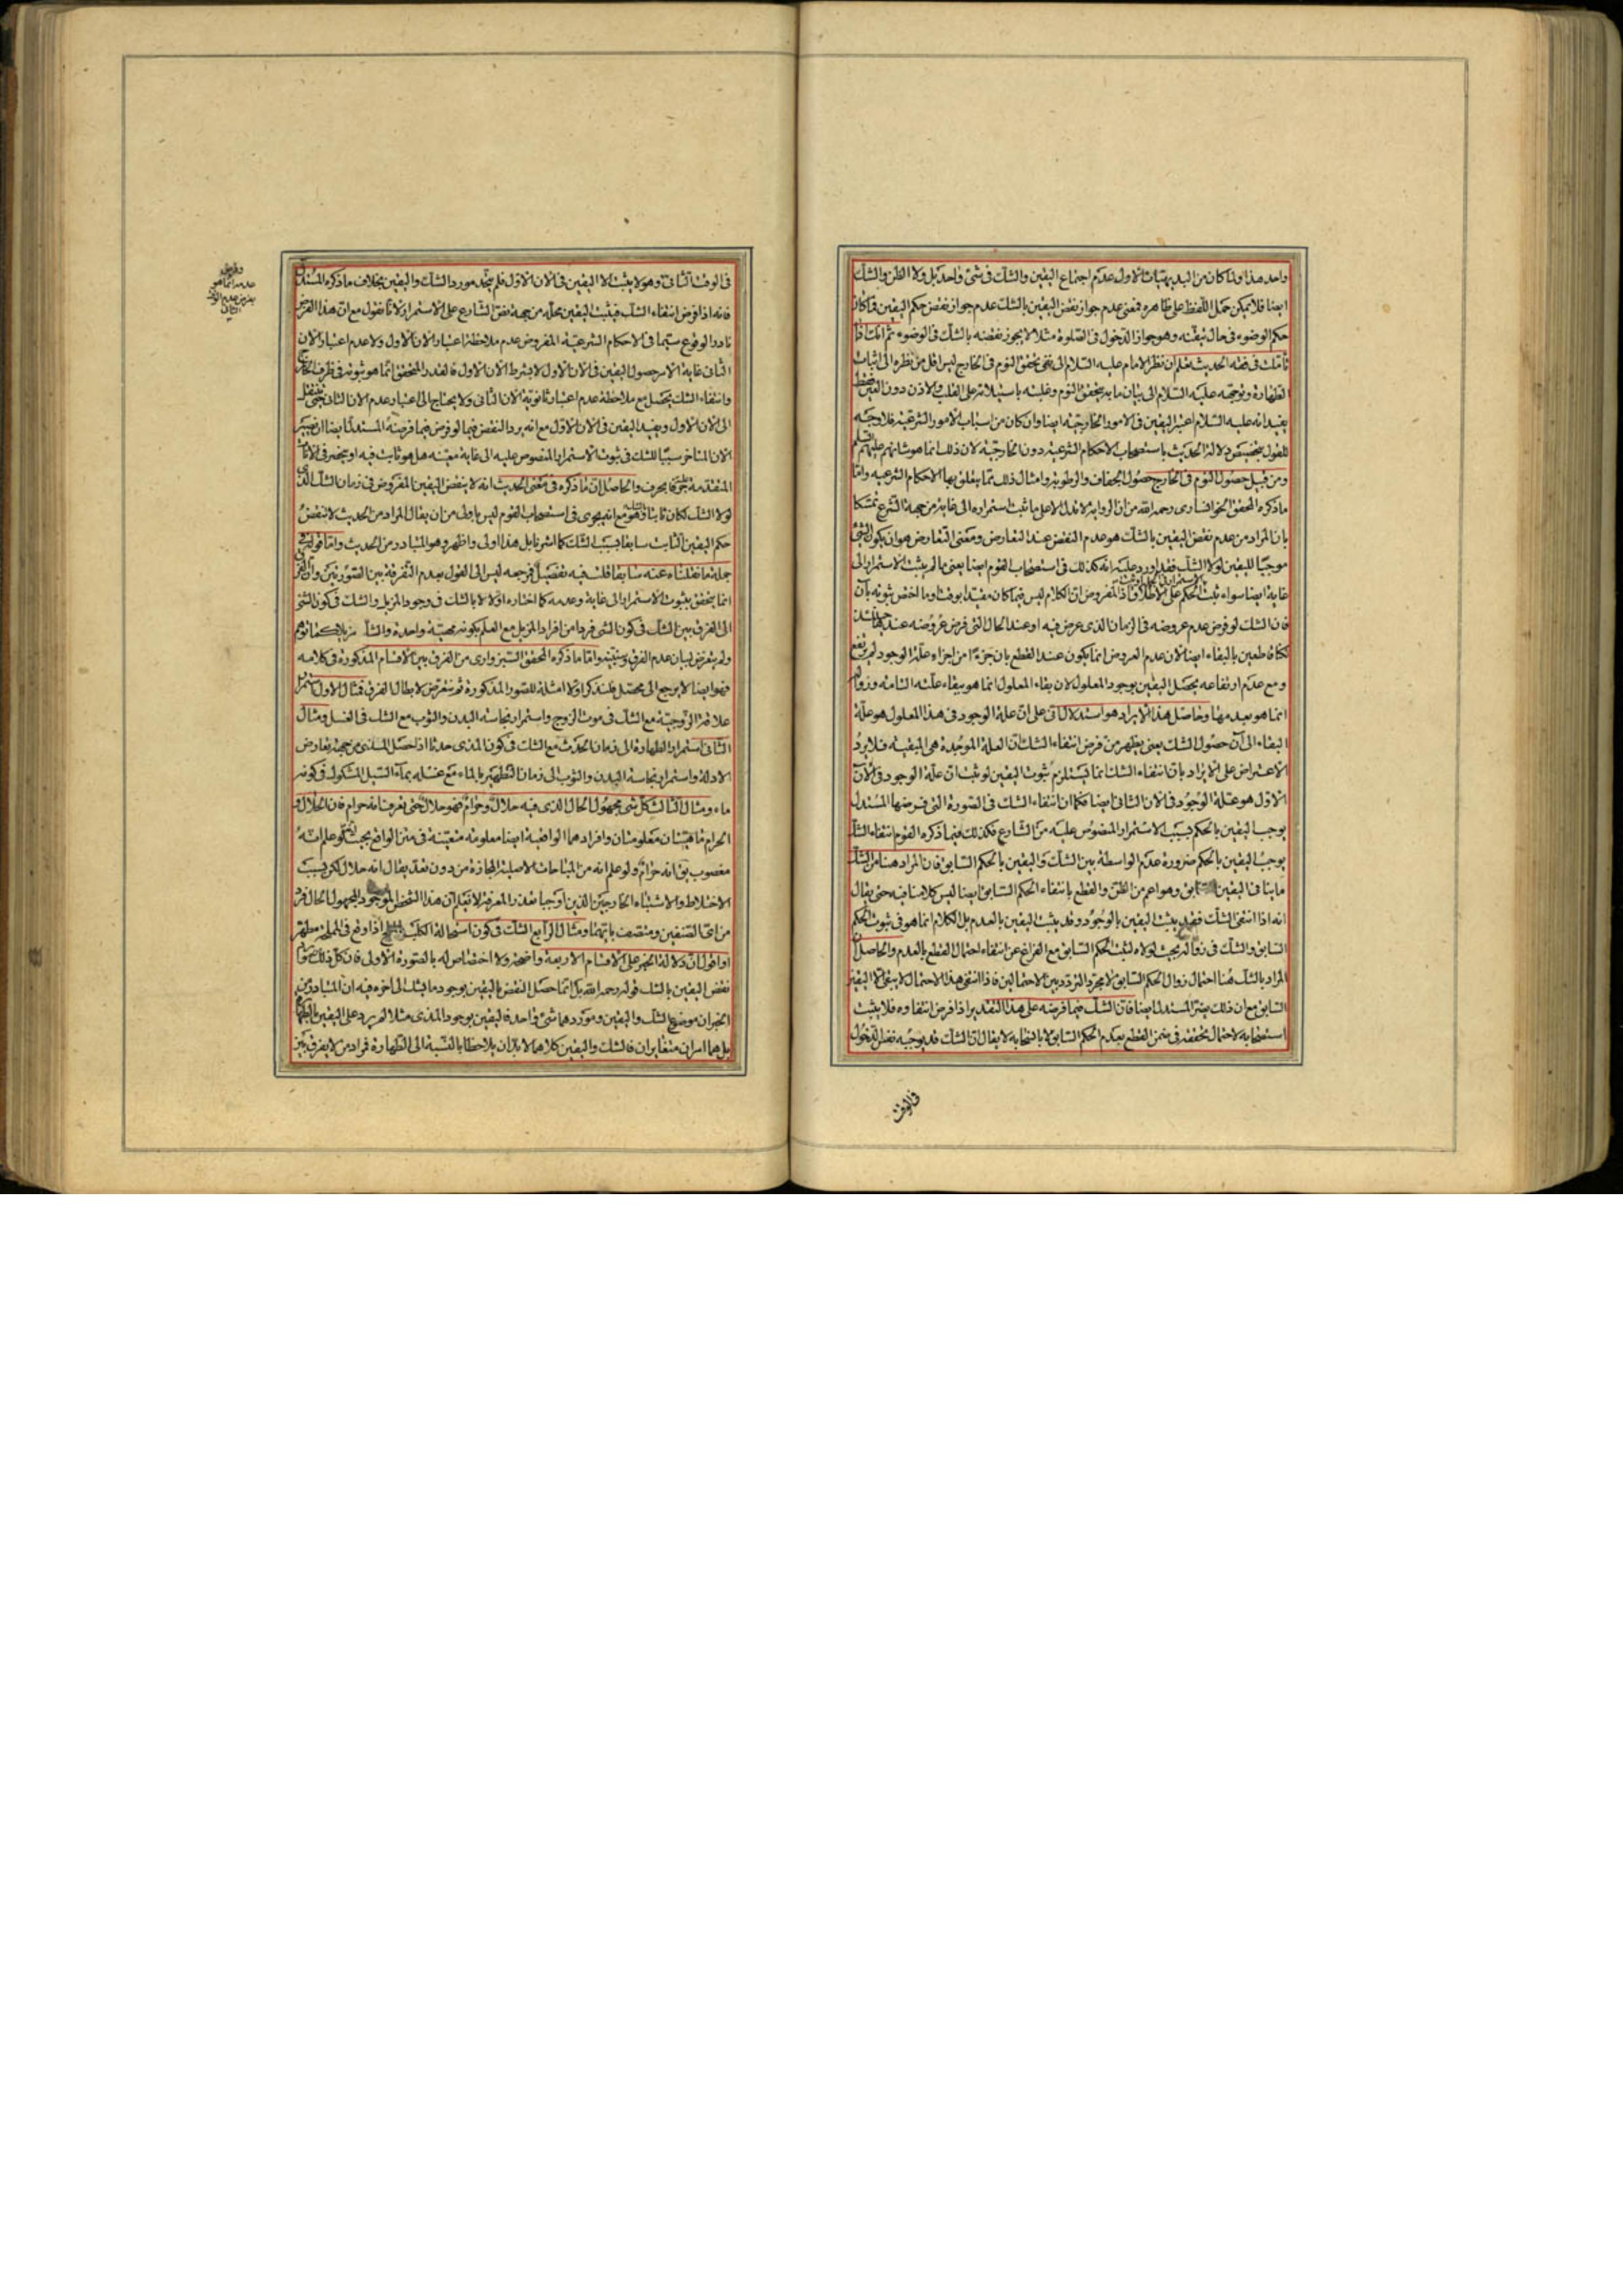 واحد هذا ولما كان من البديهيات الاولى عدم اجتماع اليقين والشك فى شئ واحد بل ولا الظن والشك
ايضا فلا يمكن حمل اللفظ على ظاهره فمعنى عدم جواز نقض اليقين بالشك عدم جواز نقض حكم اليقين
حكم الوضوء فى حال تيقنه وهو جواز الدخول فى الصلوة مثلا لا يجوز نقضه بالشك فى الوضوء ثم انك اذا
تاملت فى فقه الحديث تعلم ان نظر الامام عليه السلام الى نفى تحقق النوم فى الخارج ليس اقل من نظره الى اثبات
الطهارة وتوجهه عليه السلام الى بيان ما به يتحقق النوم وغلبته باستيلائه على القلب والاذن دون العين فقط
يفيد انه عليه السلام اعتبر اليقين فى الامور الخارجية ايضا وان كان من اسباب الامور الشرعية فلا وجه
للقول بتخصيص دلالة الحديث باستصحاب الاحكام الشرعية دون الخارجية لان ذلك انما هو شانهم عليهم السلم
ومن قبيل حصول النوم فى الخارج حصول الجفاف والرطوبة وامثال ذلك مما يتعلق بها الاحكام الشرعيه واما
ما ذكره المحقق الخوانسارى رحمه الله من ان الرواية لا تدل الا على ما ثبت استمراره الى غاية من جهة الشرع تمسكا
بان المراد من عدم نقض اليقين بالشك هو عدم النقض عند التعارض ومعنى التعارض هو ان يكون الشئ
موجبا لليقين لولا الشك فقد اورد عليه انه كذلك فى استصحاب القوم ايضا يعنى ما لم يثبت الاستمرار الى
غاية ايضا سواء ثبت الحكم على الاطلاق اذ المفروض ان الكلام ليس فيما كان مقيدا بوقت وما اختص ثبوته بآن
فان الشك لو فرض عدم عروضه فى الزمان الذى عرض فيه او عند الحال التى فرض عروضه عندها
لكنا قاطعين بالبقاء ايضا لان عدم العروض انما يكون عند القطع بان جزءا من اجزاء علة الوجود لم يرتفع
ومع عدم ارتفاعه يحصل اليقين بوجود المعلول لان بقاء المعلول انما هو ببقاء علته التامة وزواله
انما هو بعدمها وحاصل هذا الايراد هو استدلال انى على ان علة الوجود فى هذا المعلول هو علة
البقاء الى آن حصول الشك يعنى يظهر من فرض انتفاء الشك ان العلة الموجدة هى المبقية فلا يرد
الاعتراض على الايراد بان انتفاء الشك انما يستلزم ثبوت اليقين لو ثبت ان علة الوجود فى الآن
الاول هو علة الوجود فى الان الثانى ايضا فكما ان انتفاء الشك فى الصورة التى فرضها المستدل
يوجب اليقين بالحكم بسبب الاستمرار المنصوص عليه من الشارع فكذلك فيما ذكره القوم انتفاء الشك
يوجب اليقين بالحكم ضرورة عدم الواسطة بين الشك واليقين بالحكم السابق فان المراد هنا من الشك
ما ينافى اليقين السابق وهو اعم من الظن والقطع بانتفاء الحكم السابق ايضا ليس كلامنا فيه حتى يقال
انه اذا انتفى الشك فقد يثبت اليقين بالوجود وقد يثبت اليقين بالعدم بل الكلام انما هو فى ثبوت الحكم
السابق والشك فى زواله بحيث لولاه لثبت الحكم السابق مع الفراغ عن انتفاء احتمال القطع بالعدم والحاصل ان
المراد بالشك هنا احتمال زوال الحكم السابق لا مجرد التردد بين الاحتمالين فاذا انتفى هذا الاحتمال لا يبقى الا اليقين
السابق مع ان ذلك يضر المستدل ايضا فان الشك فيما فرضه على هذا التقدير اذا فرض انتفاوه فلا يثبت
استصحابه لاحتمال تحققه فى ضمن القطع بعدم الحكم السابق لا بانتفائه لا يقال ان الشك قد يوجبه نفس الدخول
فى الوقت
فى الوقت الثانى وهو لا يثبت الا اليقين فى الان الاول فلم يتحد مورد الشك واليقين بخلاف ما ذكره المستدل
فانه اذا فرض انتفاء الشك فيثبت اليقين بحاله من جهة نص الشارع على الاستمرار لانا نقول مع ان هذا الفرض
نادر الوقوع سيما فى الاحكام الشرعية المفروض عدم ملاحظة اعتبار الان الاول ولا عدم اعتبار الان
الثانى غاية الامر حصول اليقين فى الان الاول لا بشرط الان الاول فالقدر المتحقق انما هو ثبوته فى ظرف الخارج
وانتفاء الشك يحصل مع ملاحظة عدم اعتبار ثانوية الان الثانى ولا يحتاج الى اعتبار عدم الان الثانى حتى ينتقل
الى الان الاول ويفيد اليقين فى الان الاول مع انه يرد النقض فيما لو فرض فيما فرضه المستدل ايضا ان يصير
الان المتاخر سببا للشك فى ثبوت الاستمرار المنصوص عليه الى غاية معينه هل هو ثابت فيه او ينحصر فى الانات
المتقدمة حرفا بحرف والحاصل ان ما ذكره فى معنى الحديث انه لا ينقض اليقين المفروض فى زمان الشك الذى
لولا الشك لكان ثابتا مع انه يجرى فى استصحاب القوم ليس باولى من ان يقال المراد من الحديث لا تنقض
حكم اليقين الثابت سابقا بسبب الشك كما اشرنا بل هذا اولى واظهر وهو المتبادر من الحديث واما قوله فى
جملة ما نقلناه عنه سابقا قلت فيه تفصيل فمرجعه ليس الى القول بعدم التفرقة بين الصورتين وان الفرق
انما يتحقق بثبوت الاستمرار الى غاية وعدمه كما اختاره اولا لا بالشك فى وجود المزيل والشك فى كون الشئ
الى الفرق بين الشك فى كون الشئ فردا من افراد المزيل مع العلم بكونه
ولم يتعرض لبيان عدم الفرق واما ما ذكره المحقق السبزوارى من الفرق بين الاقسام المذكورة فى كلامه
فهو ايضا لا يرجع الى محصل فلنذكر اولا امثلة للصور المذكورة ثم نتعرض لابطال الفرق فمثال الاول استمرار
علاقة الزوجية مع الشك فى موت الزوج واستمرار نجاسة البدن والثوب مع الشك فى الغسل ومثال
الثانى استمرار الطهارة الى زمان الحدث مع الشك فى كون المذى حدثا اذا حصل الشك من جهة تعارض
الادلة واستمرار نجاسة البدن والثوب الى زمان التطهير بالماء مع غسله بماء السيل المشكوك فى كونه
ماء ومثال الثالث كل شئ مجهول الحال الذى فيه حلال وحرام فهو حلال حتى يعرف انه حرام فان الحلال و
الحرام ماهيتان معلومتان وافرادهما الواقعية ايضا معلومة متعينة فى متن الواقع بحيث لو علم انه
مغصوب يق انه حرام ولو علم انه من المباحات الاصلية المحازة من دون تعد يقال انه حلال لكن بسبب
الاختلاط والاشتباه الخارجين الذين اوجبا تعذر المعرفة لا نعلم ان هذا الشخص الموجود المجهول الحال فرد
من اى الصنفين ومتصف بايهما ومثال الرابع الشك فى كون استحالة الكلب اذا وقع فى المملحة مطهرا
او اقول ان دلالة الخبر على الاقسام الاربعة واضحة ولا اختصاص له بالصورة الاولى فان كل ذلك
نقض اليقين بالشك قوله رحمه الله بل انما حصل النقض باليقين بوجود ما يشك الى اخره فيه ان المتبادر من
الخبر ان موضع الشك واليقين وموردهما شئ واحد فاليقين بوجود المذى مثلا لم يرد على اليقين بالطهارة
بل هما امران متغايران فالشك واليقين كلاهما لا بد ان يلاحظا بالنسبة الى الطهارة فمراد من لا يفرق بين